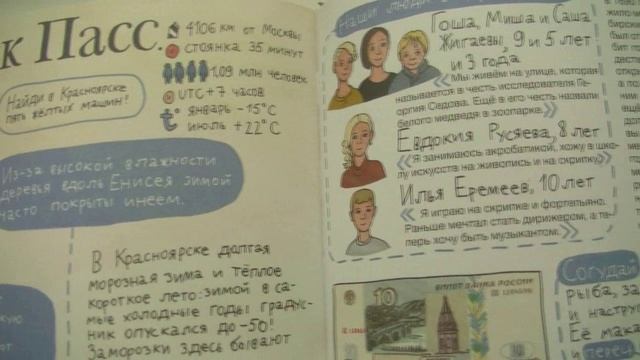 к Пасс.
4106 км от Москвы
стоянка 35 минут
1.09 млн человек
UTC+7 часов
январь -15°C
июль +22°C
Найди в Красноярске
пять жёлтых машин!
Из-за высокой влажности
деревья вдоль Енисея зимой
часто покрыты инеем.
В Красноярске долгая
морозная зима и тёплое
короткое лето: зимой в са-
мые холодные годы градус-
ник опускался до -50!
Заморозки здесь бывают
Наши люди
Гоша, Миша и Саша
Жигаевы, 9 и 5 лет
и 3 года
«Мы живём на улице, которая
называется в честь исследователя Ге-
оргия Седова. Ещё в его честь назвали
белого медведя в зоопарке.»
Евдокия Русяева, 8 лет
«Я занимаюсь акробатикой, хожу в шко-
лу искусств на живопись и на скрипку»
Илья Еремеев, 10 лет
«Я играю на скрипке и фортепьяно.
Раньше мечтал стать дирижёром, а те-
перь хочу быть музыкантом.»
БИЛЕТ БАНКА РОССИИ
10
10
Согудай
рыба, за
и настру
Её мака
и перец